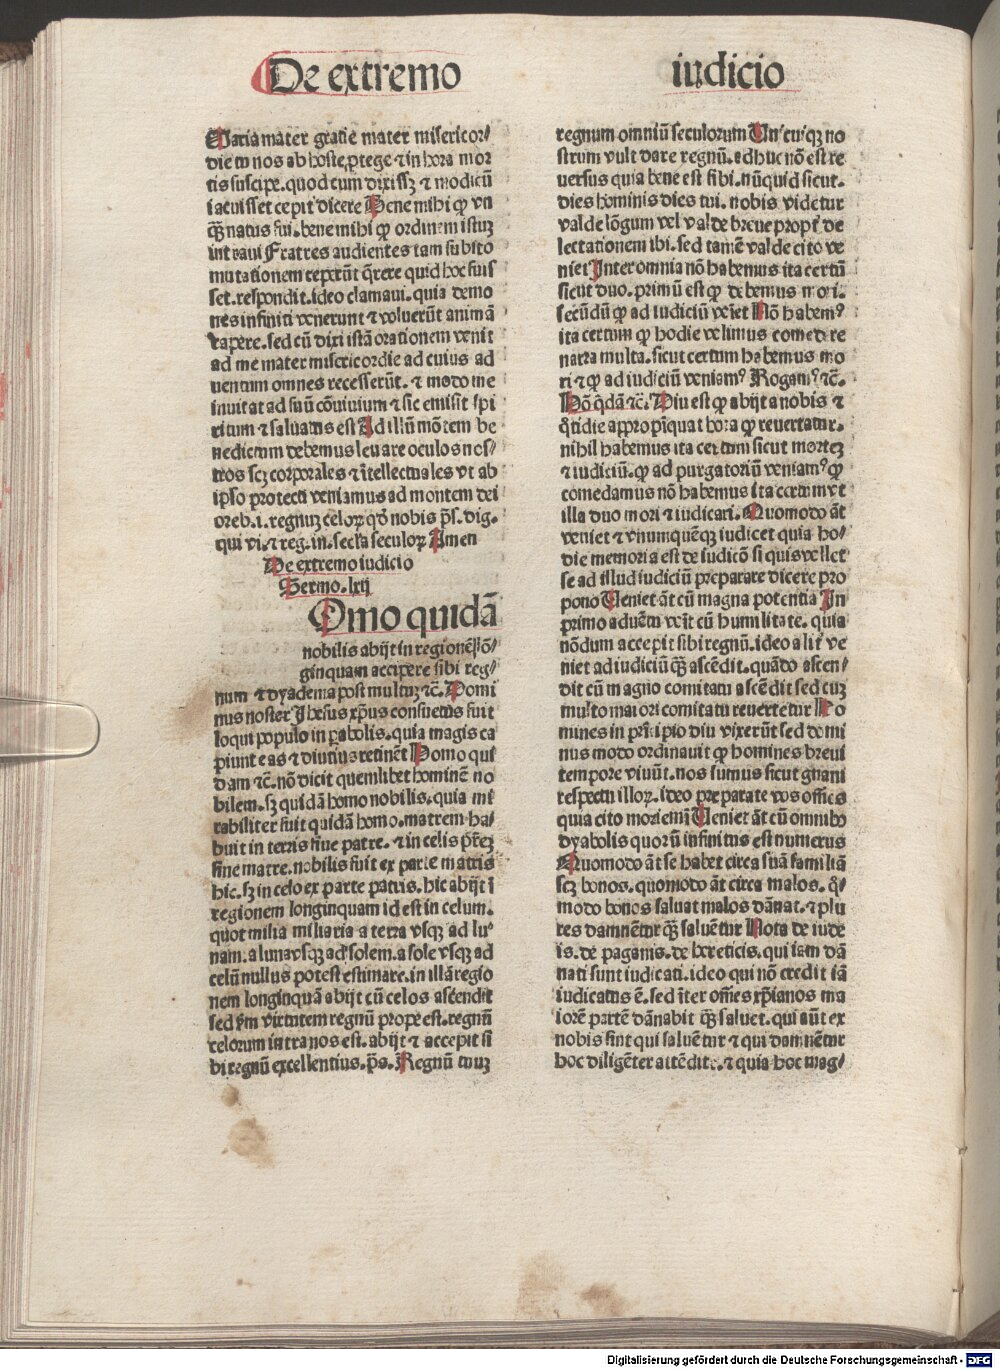 De extremo iudicio
Maria mater gratie mater misericor/
die tu nos ab hoste ꝓtege ⁊ in hora mor
tis suscipe. quod cum dixissꝫ ⁊ modicū
iacuisset cepit dicere Bene mihi ꝙ vn
ꝙ̄ natus fui. bene mihi ꝙ ordinem istuꝫ
intraui Fratres audientes tam subito
mutationem ceperūt q̄rere quid hoc fuis
set. respondit. ideo clamaui. quia demo
nes infiniti venerunt ⁊ voluerūt animā
rapere. sed cū dixi istā orationem venit
ad me mater misericordie ad cuius ad
uentum omnes recesserūt. ⁊ modo me
inuitat ad suū cōuiuium ⁊ sic emisit spi
ritum ⁊ saluatus est Ad illū mōtem be
nedictum debemus leuare oculos nos/
tros scꝫ corporales ⁊ ītellectuales vt ab
ipso protecti veniamus ad montem dei
oreb .i. regnuꝫ celoꝝ qḋ nobis p̄s. dig.
qui vi. ⁊ reg. in. secla seculoꝝ Amen
De extremo iudicio
Sermo. lxij
Omo quidā
nobilis abijt in regionē lō/
ginquam accipere sibi reg/
num ⁊ dyadema post multuꝫ ⁊c̄. Domi
nus noster Jhesus xp̄us consuetus fuit
loqui populo in ꝑabolis. quia magis ca
piunt eas ⁊ diutius retinēt Homo qui
dam ⁊c̄. nō dicit quemlibet hominē no
bilem. sꝫ quidā homo nobilis. quia mi
rabiliter fuit quidā homo. matrem ha/
buit in terris sine patre. ⁊ in celis pr̄eꝫ
sine matre. nobilis fuit ex parte matris
hic. sꝫ in celo ex parte patris. hic abijt ī
regionem longinquam id est in celum.
quot milia miliaria a terra vsqꝫ ad lu/
nam. a luna vsqꝫ ad solem. a sole vsqꝫ ad
celū nullus potest estimare. in illā regio
nem longinquā abijt cū celos ascendit
sed ẜm virtutem regnū prope est. regnū
celorum intra nos est. abijt ⁊ accepit si
bi regnū excellentius. p̄s. Regnū tuuꝫ
regnum omniū seculorum Vnicuiqꝫ no
strum vult dare regnū. adhuc nō est re
uersus quia bene est sibi. nūquid sicut.
dies hominis dies tui. nobis videtur
valde lōgum vel valde breue propt̄ de
lectationem ibi. sed tamē valde cito ve
niet Inter omnia nō habemus ita certū
sicut duo. primū est ꝙ debemus mori.
secūdū ꝙ ad iudiciū veīet Nō habemꝰ
ita certum ꝙ hodie velimus comedere
narra multa. sicut certum habemus mo
ri ⁊ ꝙ ad iudiciū veniamꝰ Rogamꝰ ⁊c̄.
Hō q̄dā ⁊c̄. Diu est ꝙ abijt a nobis ⁊
q̄tidie appropīquat hora ꝙ reuertatur.
nihil habemus ita certum sicut morteꝫ
⁊ iudiciū. ꝙ ad purgatoriū veniamꝰ ꝙ
comedamus nō habemus ita certum vt
illa duo mori ⁊ iudicari. Quomodo āt
veniet ⁊ vnumquēqꝫ iudicet quia ho/
die memoria est de iudicō si quis vellet
se ad illud iudiciū preparare dicere pro
pono Veniet āt cū magna potentia In
primo aduētu veīt cū humilitate. quia
nōdum accepit sibi regnū. ideo alit̄ ve
niet ad iudiciū qꝫ̄ ascēdit. quādo ascen/
dit cū magno comitatu ascēdit sed cuꝫ
multo maiori comitatu reuertetur Ho
mines in prīcipio diu vixerūt sed domi
nus modo ordinauit ꝙ homines breui
tempore viuūt. nos sumus sicut gnani
respectu illoꝝ. ideo preparate vos offīes
quia cito moriemī Veniet āt cū omnibꝰ
dyabolis quorū infinitus est numerus
Quomodo āt se habet circa suā familiā
scꝫ bonos. quomodo āt circa malos. q̄/
modo bonos saluat malos dānat. ⁊ plu
res damnētur qꝫ̄ saluētur Nota de iude
is. de paganis. de hereticis. qui iam dā
nati sunt iudicati. ideo qui nō credit iā
iudicatus ē. sed īter om̄es xp̄ianos ma
iorē partē dānabit qꝫ̄ saluet. qui aūt ex
nobis sint qui saluētur ⁊ qui damnētur
hoc diligēter attēdite. ⁊ quia hoc mag/
Digitalisierung gefördert durch die Deutsche Forschungsgemeinschaft - DFG